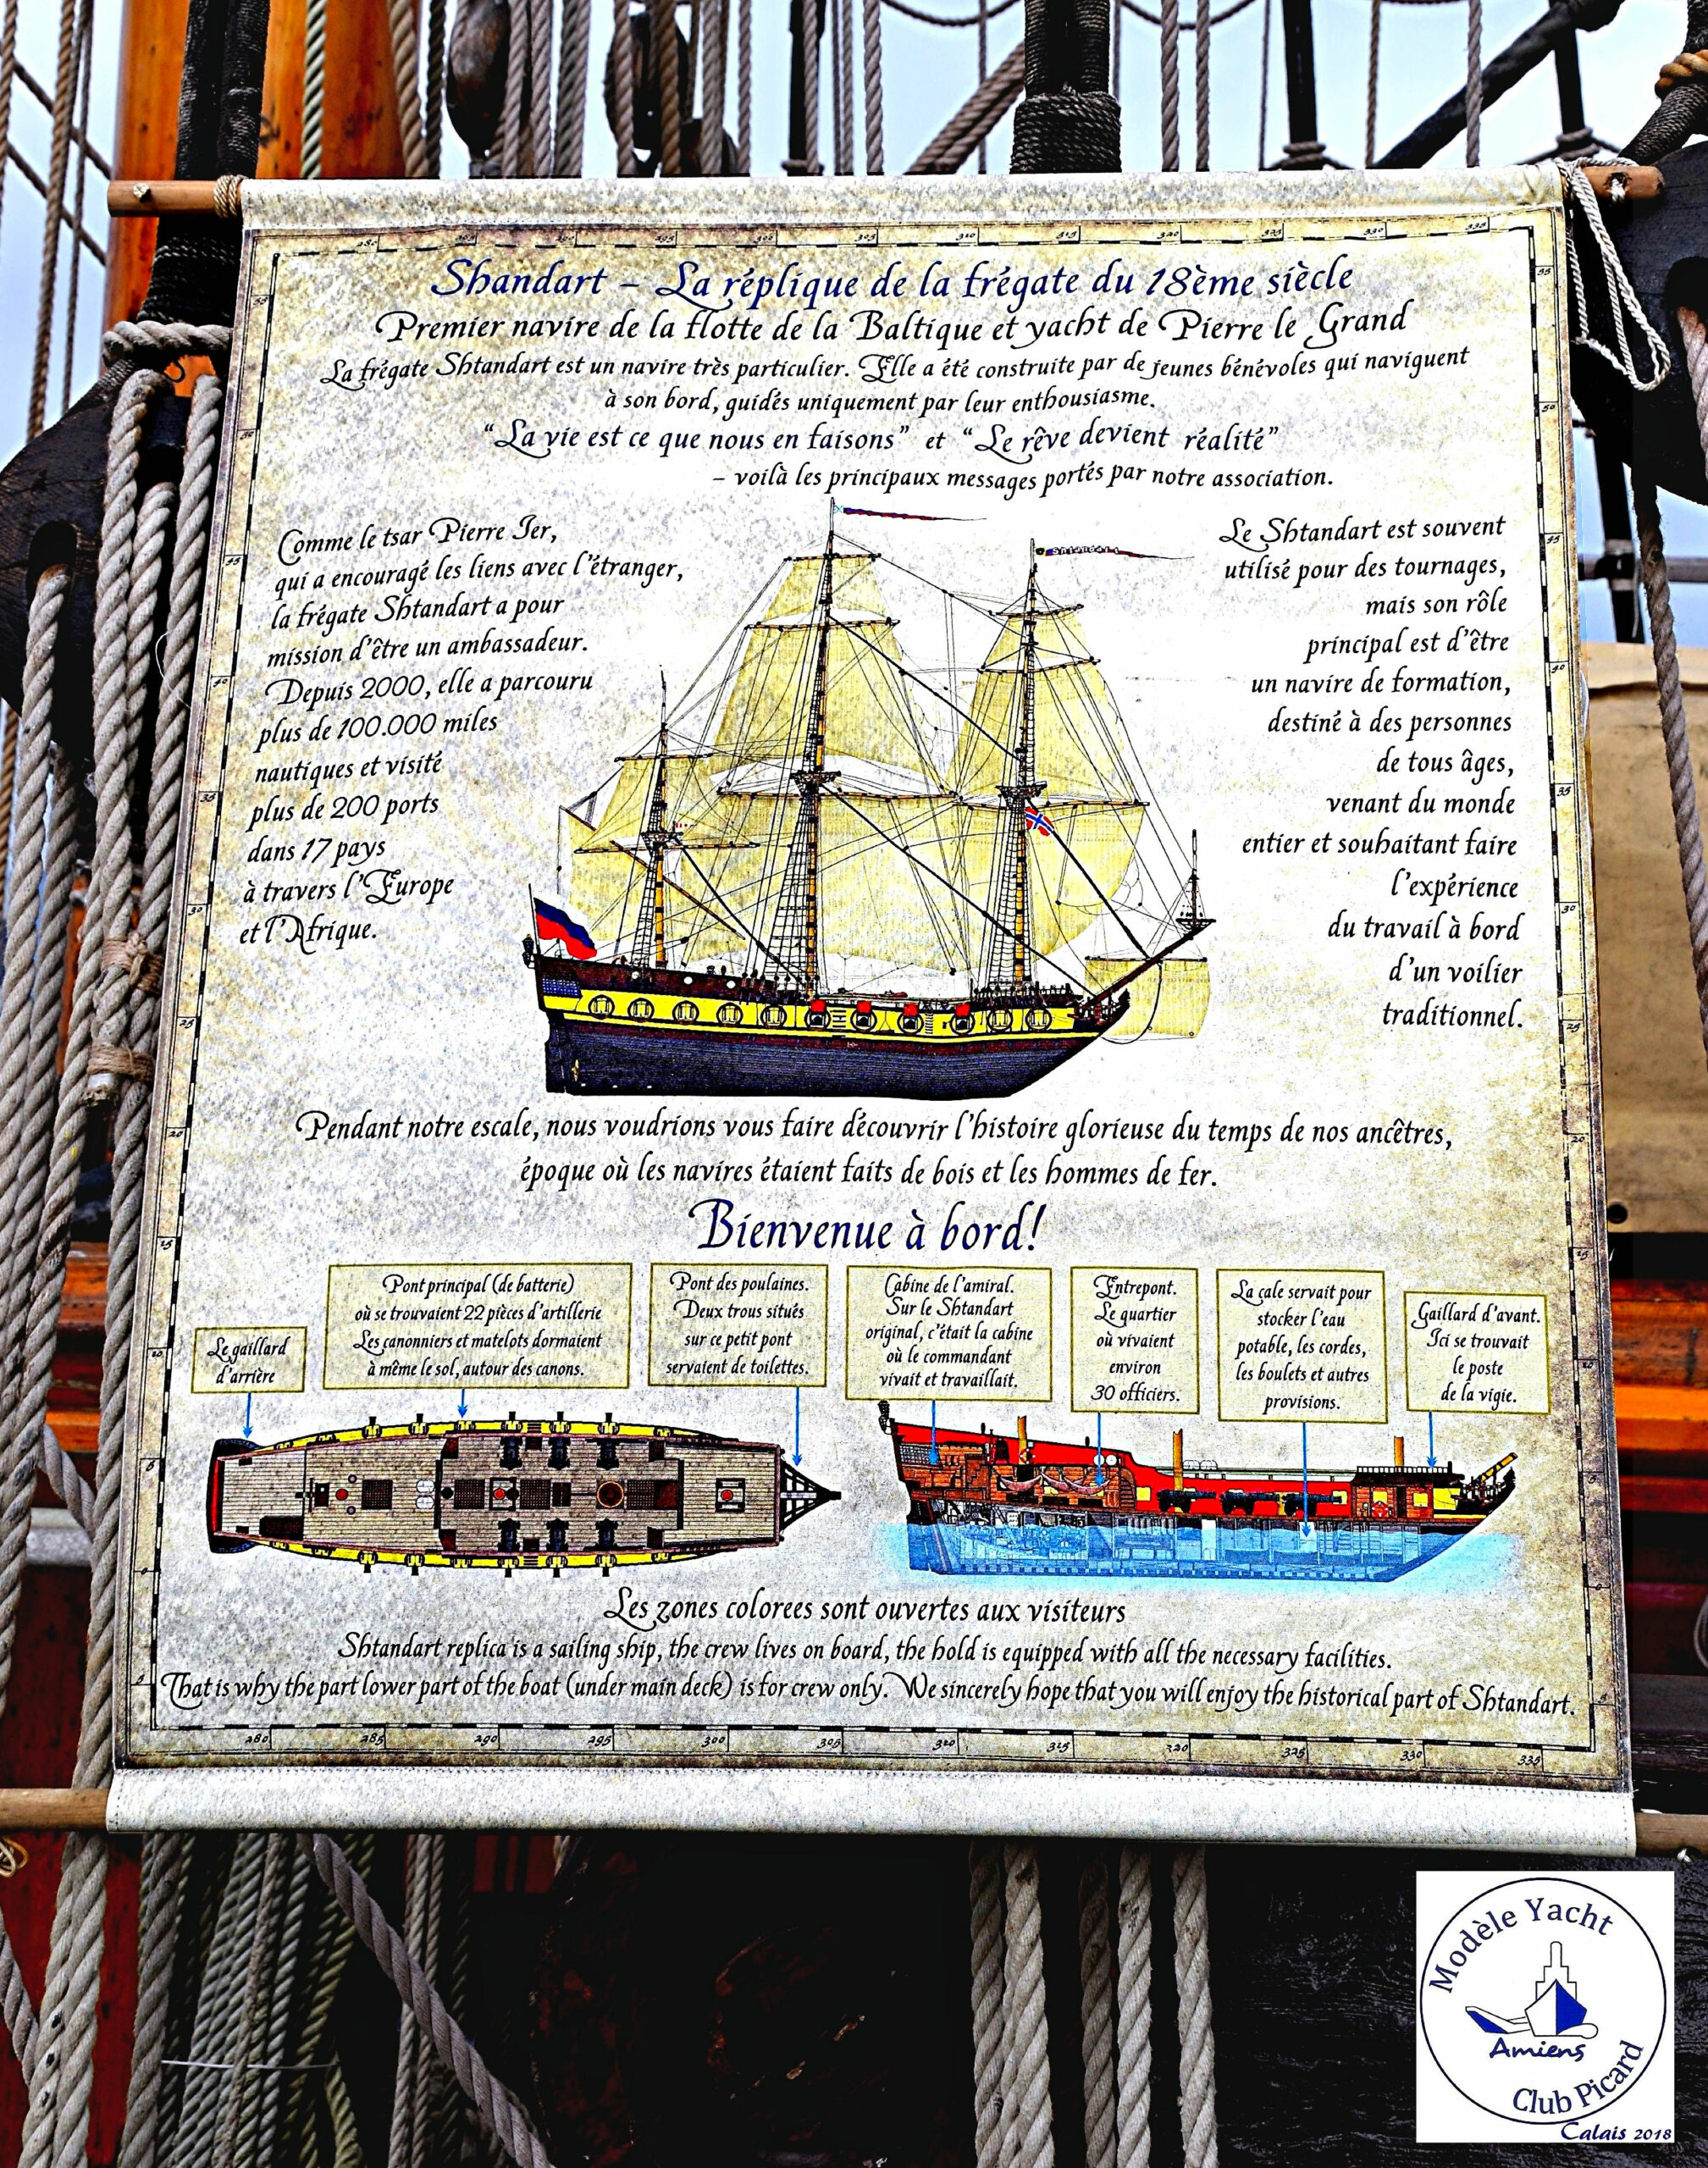 Shandart – La réplique de la frégate du 18ème siècle
Premier navire de la flotte de la Baltique et yacht de Pierre le Grand
La frégate Shtandart est un navire très particulier. Elle a été construite par de jeunes bénévoles qui naviguent
à son bord, guidés uniquement par leur enthousiasme.
“La vie est ce que nous en faisons” et “Le rêve devient réalité”
– voilà les principaux messages portés par notre association.
Comme le tsar Pierre Ier,
qui a encouragé les liens avec l'étranger,
la frégate Shtandart a pour
mission d'être un ambassadeur.
Depuis 2000, elle a parcouru
plus de 100.000 miles
nautiques et visité
plus de 200 ports
dans 17 pays
à travers l'Europe
et l'Afrique.
Le Shtandart est souvent
utilisé pour des tournages,
mais son rôle
principal est d'être
un navire de formation,
destiné à des personnes
de tous âges,
venant du monde
entier et souhaitant faire
l'expérience
du travail à bord
d'un voilier
traditionnel.
Pendant notre escale, nous voudrions vous faire découvrir l'histoire glorieuse du temps de nos ancêtres,
époque où les navires étaient faits de bois et les hommes de fer.
Bienvenue à bord!
Le gaillard
d'arrière
Pont principal (de batterie)
où se trouvaient 22 pièces d'artillerie
Les canonniers et matelots dormaient
à même le sol, autour des canons.
Pont des poulaines.
Deux trous situés
sur ce petit pont
servaient de toilettes.
Cabine de l'amiral.
Sur le Shtandart
original, c'était la cabine
où le commandant
vivait et travaillait.
Entrepont.
Le quartier
où vivaient
environ
30 officiers.
La cale servait pour
stocker l'eau
potable, les cordes,
les boulets et autres
provisions.
Gaillard d'avant.
Ici se trouvait
le poste
de la vigie.
Les zones colorees sont ouvertes aux visiteurs
Shtandart replica is a sailing ship, the crew lives on board, the hold is equipped with all the necessary facilities.
That is why the part lower part of the boat (under main deck) is for crew only. We sincerely hope that you will enjoy the historical part of Shtandart.
280 285 290 295 300 305 310 315 320 325 330 335
Modèle Yacht
Amiens
Club Picard
Calais 2018